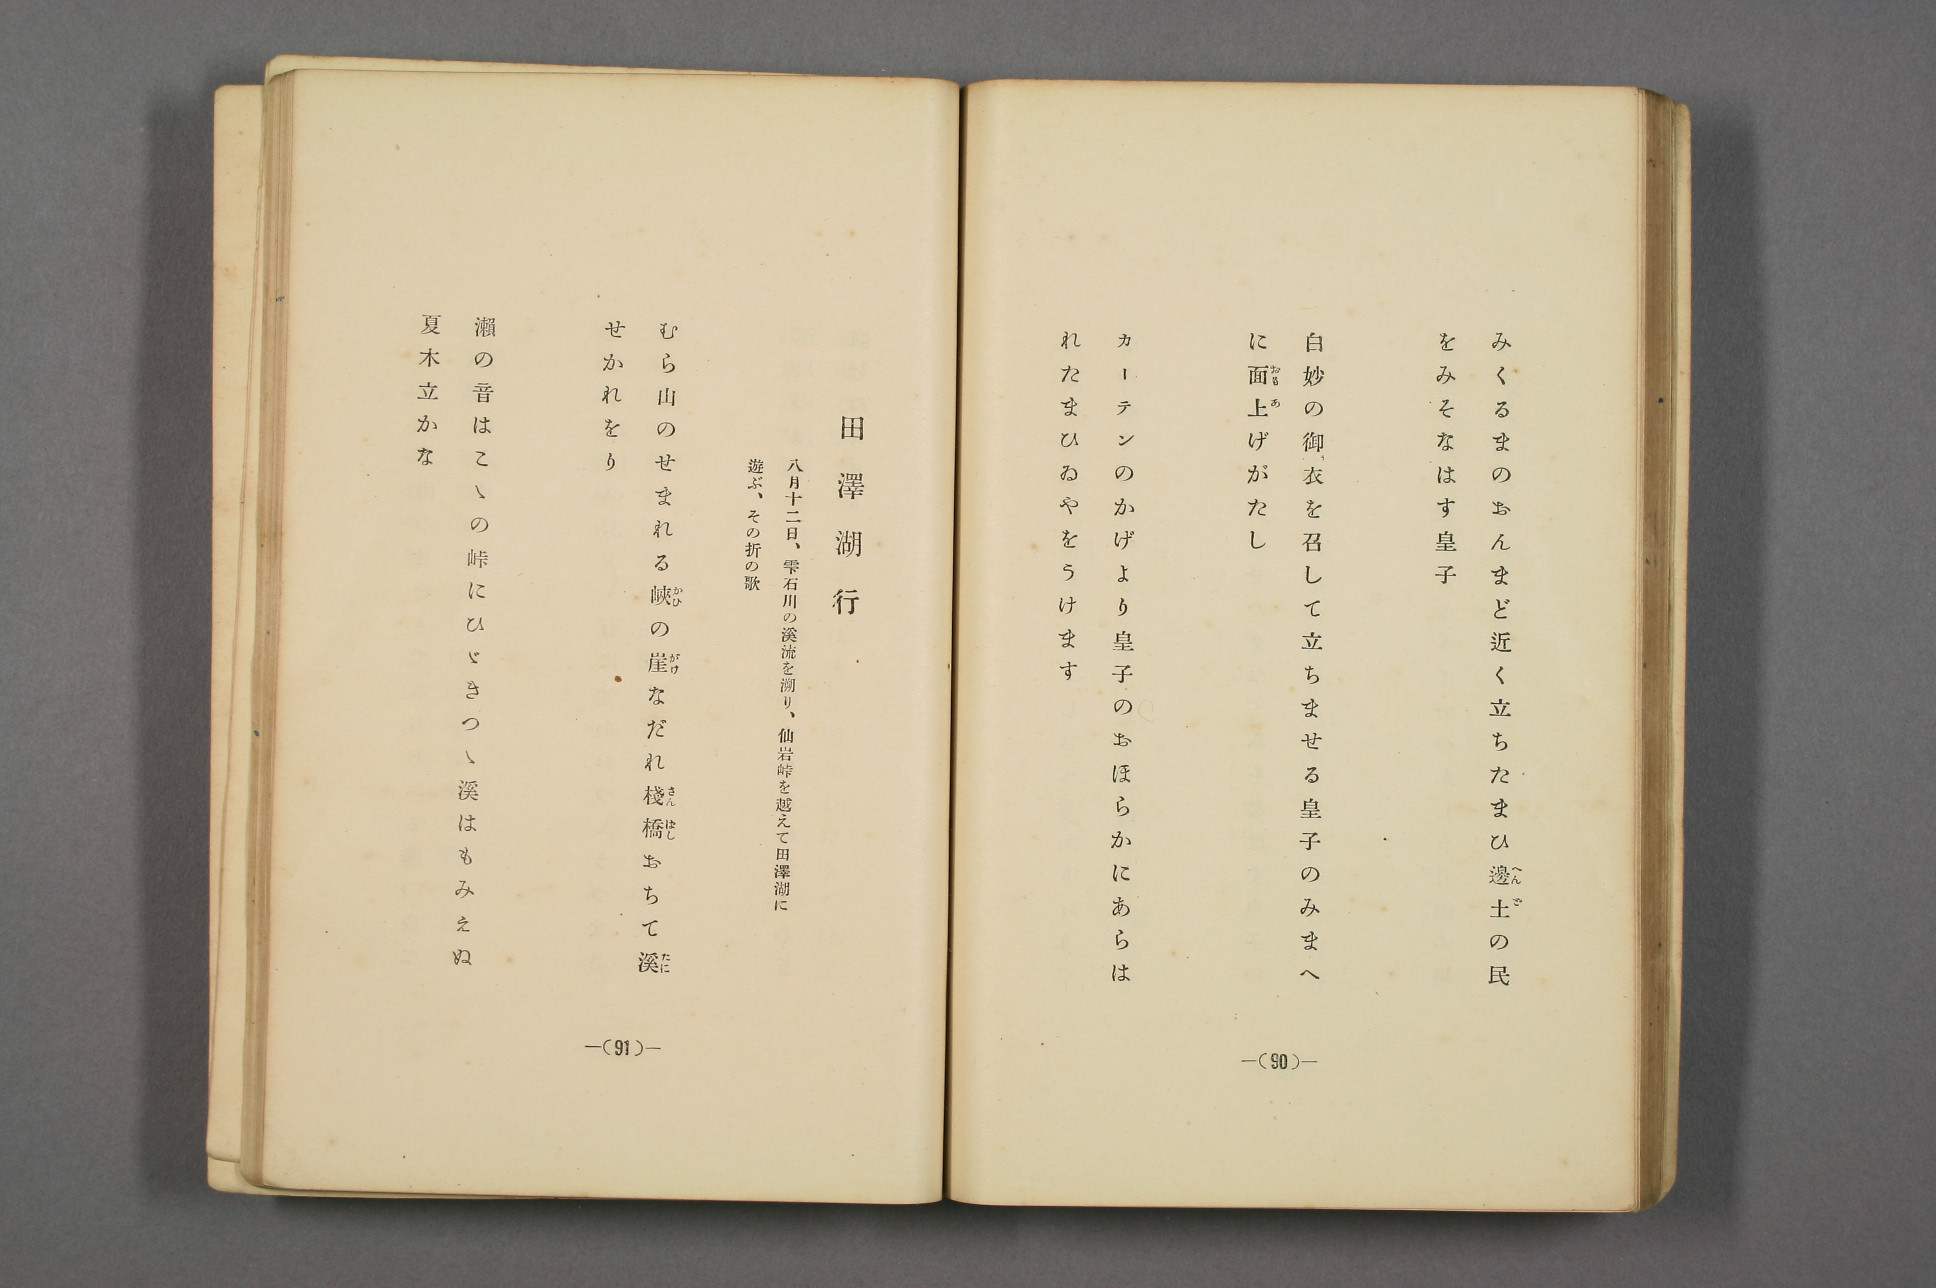 みくるまのおんまど近く立ちたまひ邊土の民
をみそなはす皇子
白妙の御衣を召して立ちませる皇子のみまへ
に面上げがたし
カーテンのかげより皇子のおほらかにあらは
れたまひゐやをうけます
—(90)—
田澤湖行
八月十二日、雫石川の溪流を溯り、仙岩峠を越えて田澤湖に
遊ぶ、その折の歌
むら山のせまれる峽の崖なだれ棧橋おちて溪
せかれをり
瀨の音はこゝの峠にひゞきつゝ溪はもみえぬ
夏木立かな
—(91)—